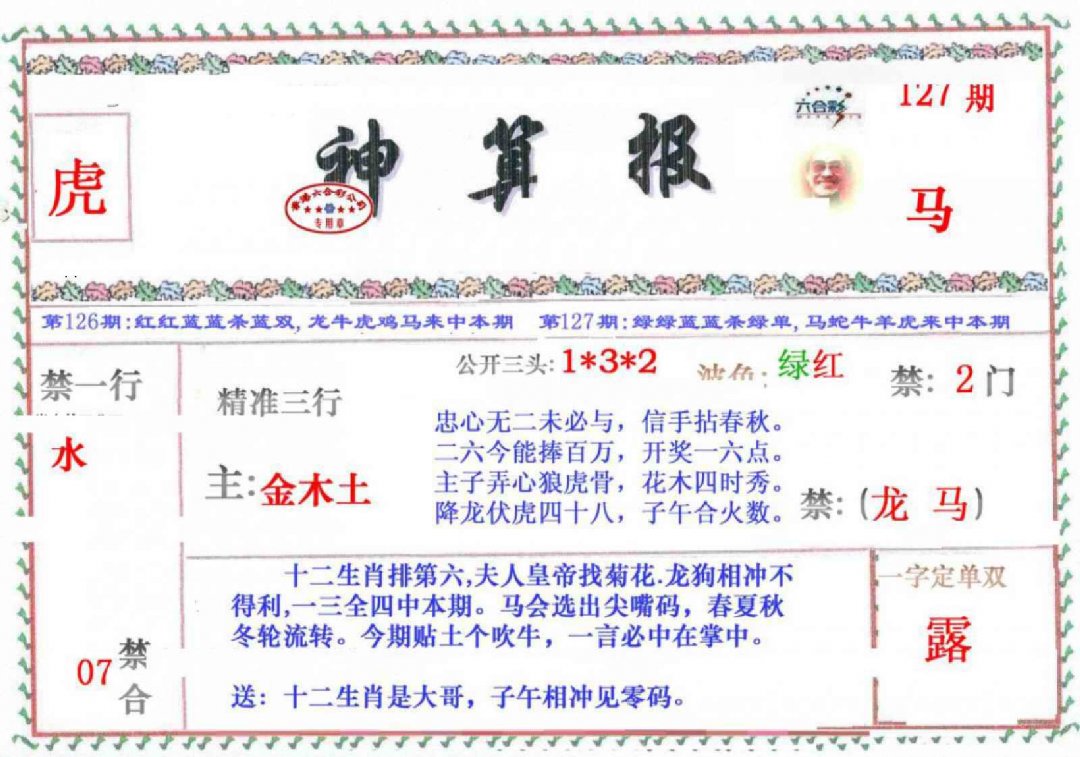 六合彩
127 期
虎
神算报
香港六合彩公司
专用章
马
第126期:红红蓝蓝杀蓝双,龙牛虎鸡马来中本期
第127期:绿绿蓝蓝杀绿单,马蛇牛羊虎来中本期
禁一行
水
精准三行
主:金木土
公开三头:1*3*2
波色:绿红
禁: 2门
忠心无二未必与，信手拈春秋。
二六今能捧百万，开奖一六点。
主子弄心狼虎骨，花木四时秀。
降龙伏虎四十八，子午合火数。
禁:(龙 马)
07
禁合
十二生肖排第六,夫人皇帝找菊花.龙狗相冲不
得利,一三全四中本期。马会选出尖嘴码，春夏秋
冬轮流转。今期贴土个吹牛，一言必中在掌中。
送：十二生肖是大哥，子午相冲见零码。
一字定单双
露